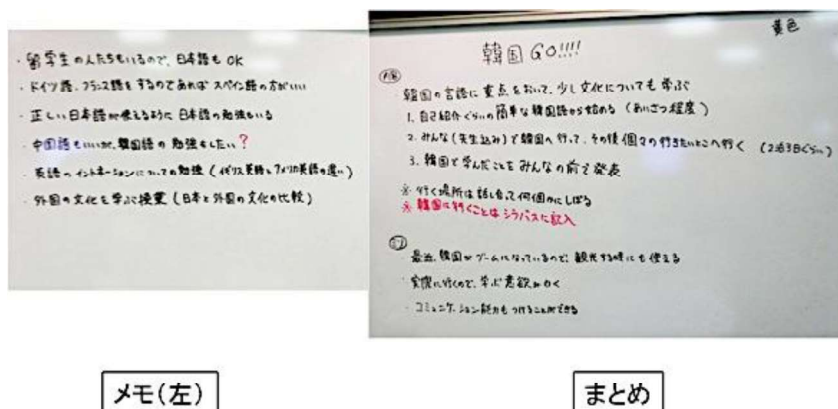 ・留学生の人たちもいるので、日本語も OK
・ドイツ語、フランス語をするのであれば スペイン語の方がいい
・正しい日本語が使えるように 日本語の勉強もいる
・中国語もいいが、韓国語の勉強もしたい?
・英語へイントネーションについての勉強 (イギリス英語とアメリカ英語の違い)
・外国の文化を学ぶ授業 (日本と外国の文化の比較)
メモ(左)
黄色
韓国 GO!!!!
韓国の言語に重点をおいて、少し文化についても学ぶ
1. 自己紹介ぐらいの簡単な韓国語から始める (あいさつ程度)
2. みんな(先生込み)で韓国へ行って、その後個々の行きたいとこへ行く (2泊3日ぐらい)
3. 韓国で学んだことをみんなの前で発表
※ 行く場所は話し合って何個かにしぼる
※ 韓国に行くことはシラバスに記入
最近、韓国がブームになっているので、観光する時にも使える
・実際に行くので、学ぶ意欲がわく
・コミュニケーション能力もつけることができる
まとめ